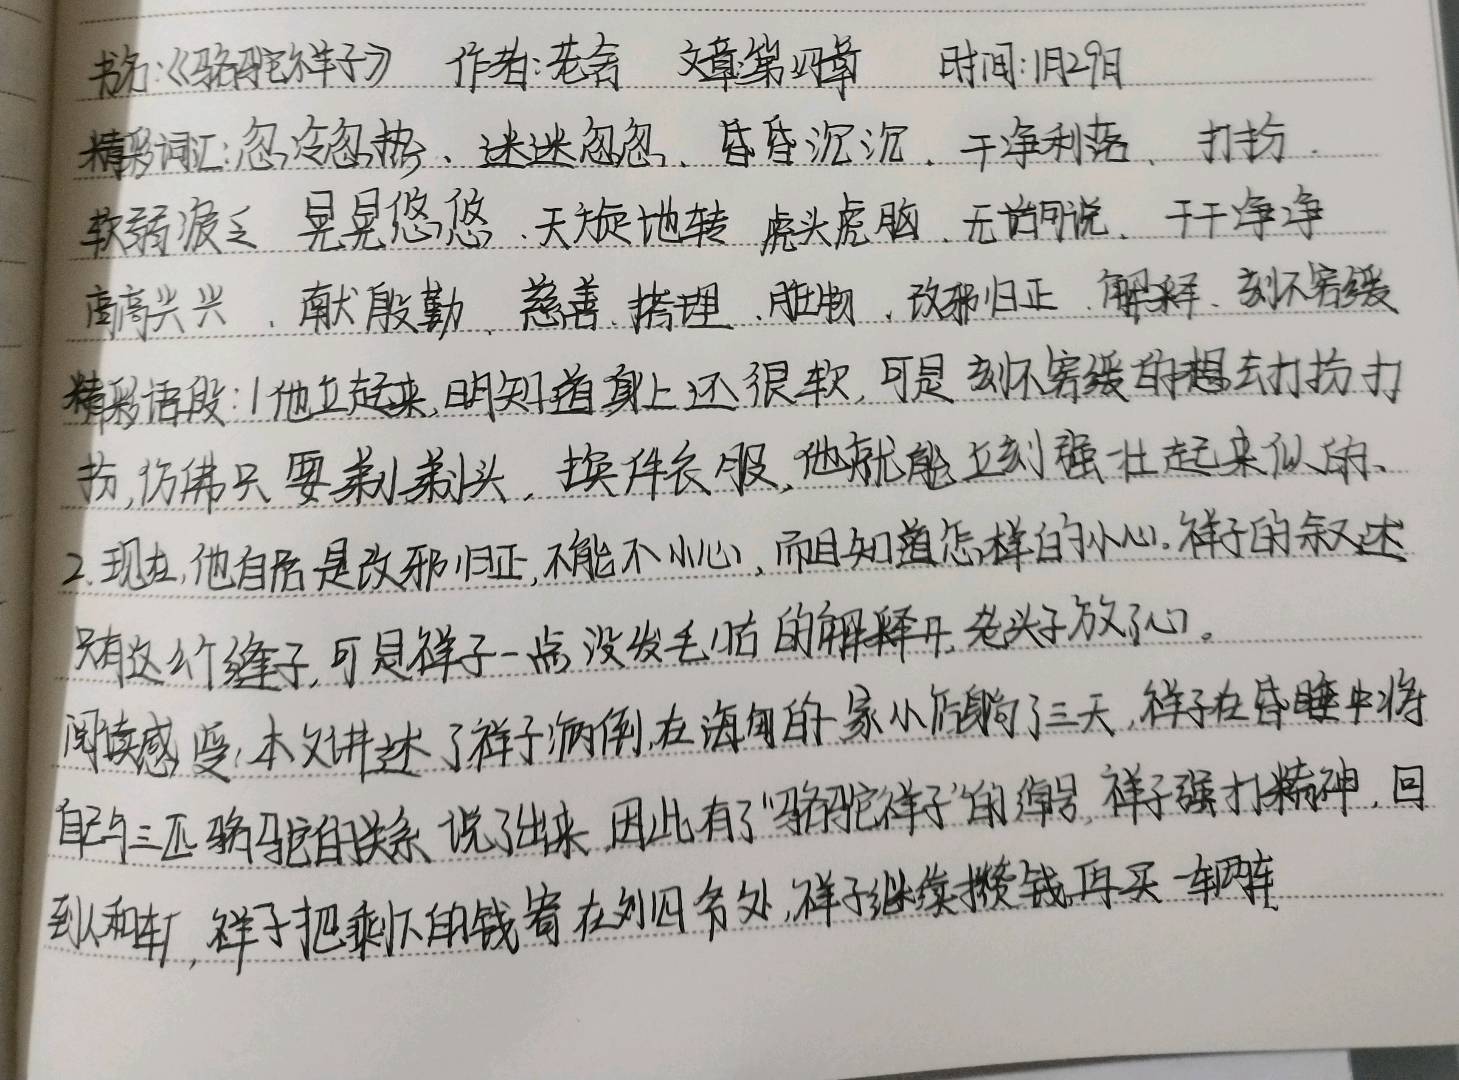 书名:《骆驼祥子》 作者:老舍 文章:第四章 时间:1月29日
精彩词汇:忽冷忽热、迷迷忽忽、昏昏沉沉、干净利落、打扮、
软弱疲乏 晃晃悠悠、天旋地转 虎头虎脑、无话可说、干干净净
高高兴兴、献殷勤、慈善、搭理、脏物、改邪归正、解释、刻不容缓
精彩语段:1他立起来,明知道身上还很软,可是刻不容缓的想去打扮打
扮,仿佛只要剃剃头,换件衣服,他就能立刻强壮起来似的、
2.现在,他自居是改邪归正,不能不小心,而且知道怎样的小心。祥子的叙述
只有这么个缝子,可是祥子一点没发毛咕的解释开,老头子放了心。
阅读感受:本文讲述了祥子病倒,在海甸的一家小店躺了三天,祥子在昏睡中将
自己与三匹骆驼的关系说了出来,因此有了“骆驼祥子”的绰号,祥子强打精神,回
到人和车厂,祥子把剩下的钱寄在刘四爷处,祥子继续攒钱再买一辆车